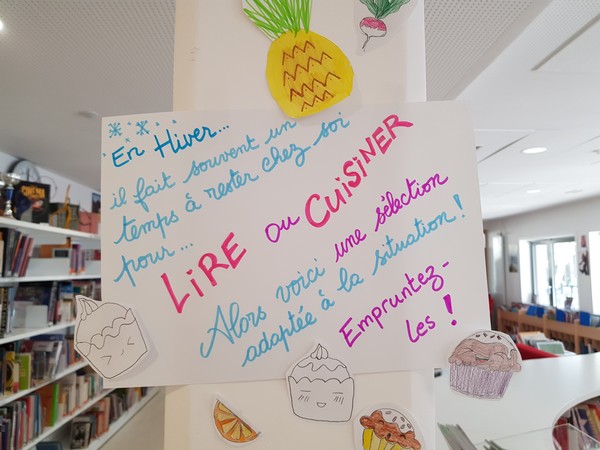 En Hiver...
il fait souvent un
temps à rester chez soi
pour...
LIRE ou CUISINER
Alors voici une sélection
adaptée à la situation !
Empruntez-
les !